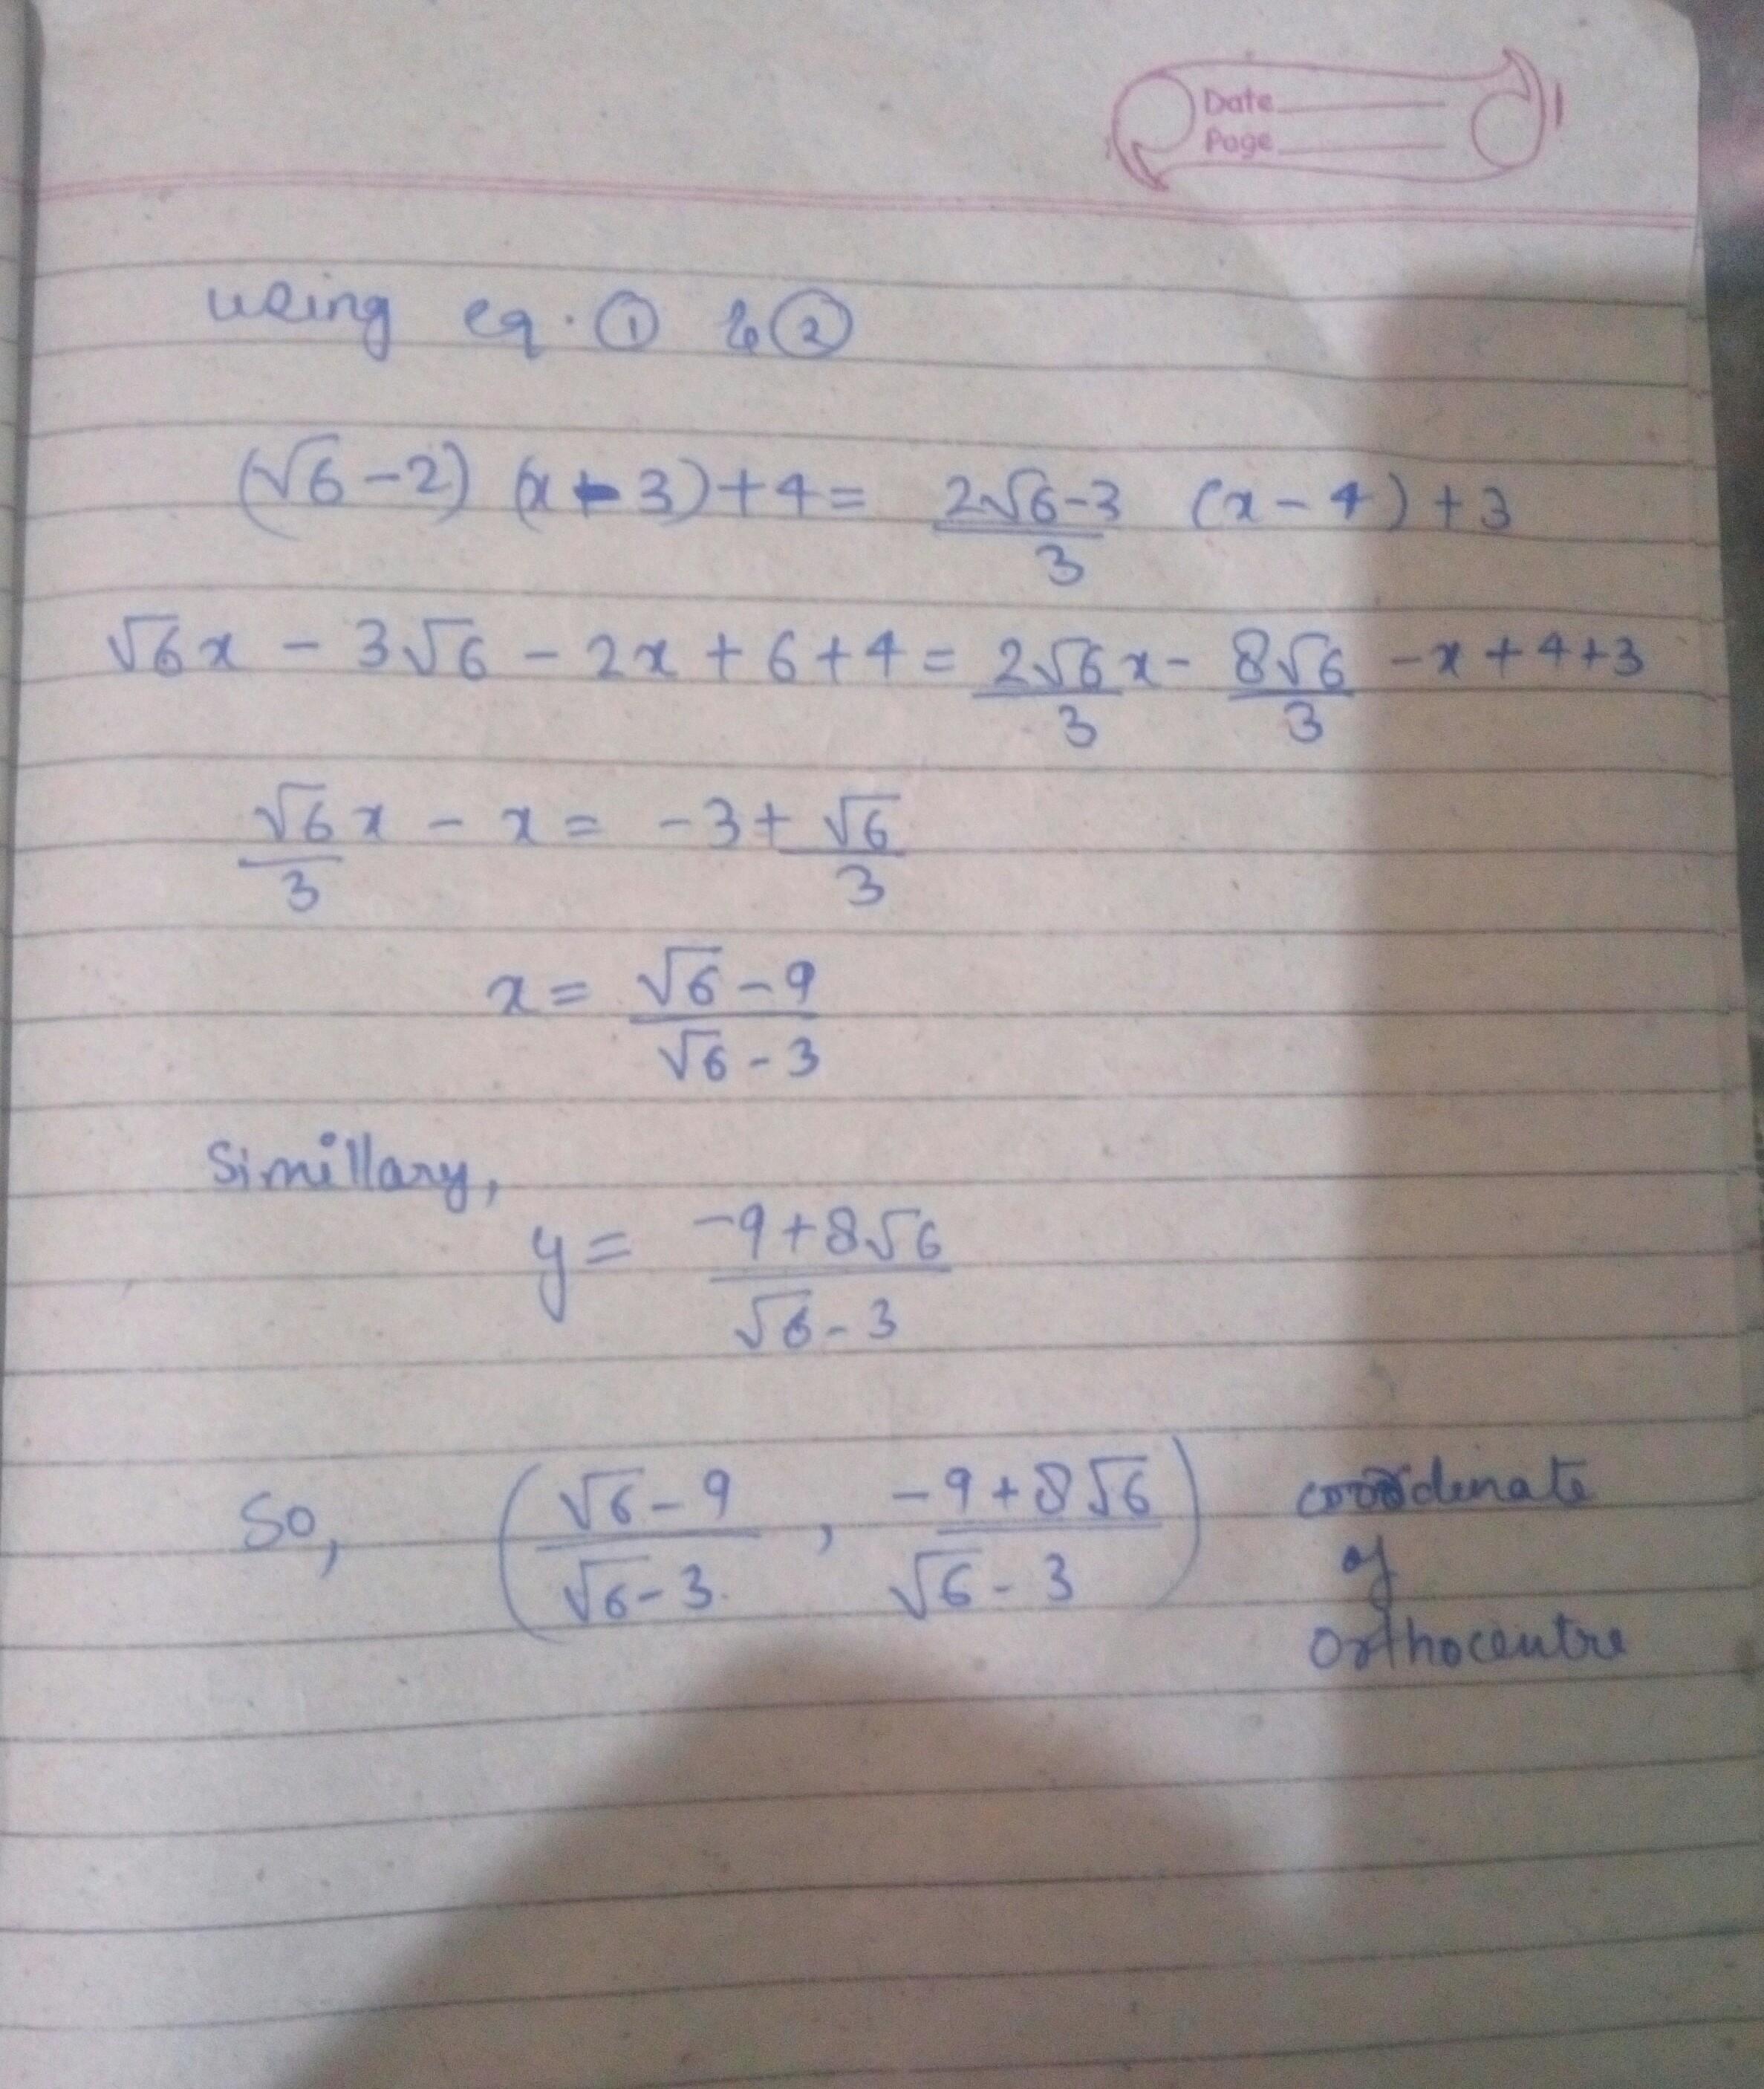 Date
Page
using eq. ① & ②
(√6 - 2) (x - 3) + 4 = (2√6 - 3)/3 (x - 4) + 3
√6x - 3√6 - 2x + 6 + 4 = 2√6/3 x - 8√6/3 - x + 4 + 3
√6/3 x - x = -3 + √6/3
x = (√6 - 9)/(√6 - 3)
Simillary,
y = (-9 + 8√6)/(√6 - 3)
So, ((√6 - 9)/(√6 - 3), (-9 + 8√6)/(√6 - 3)) coordenate
of
orthocentre